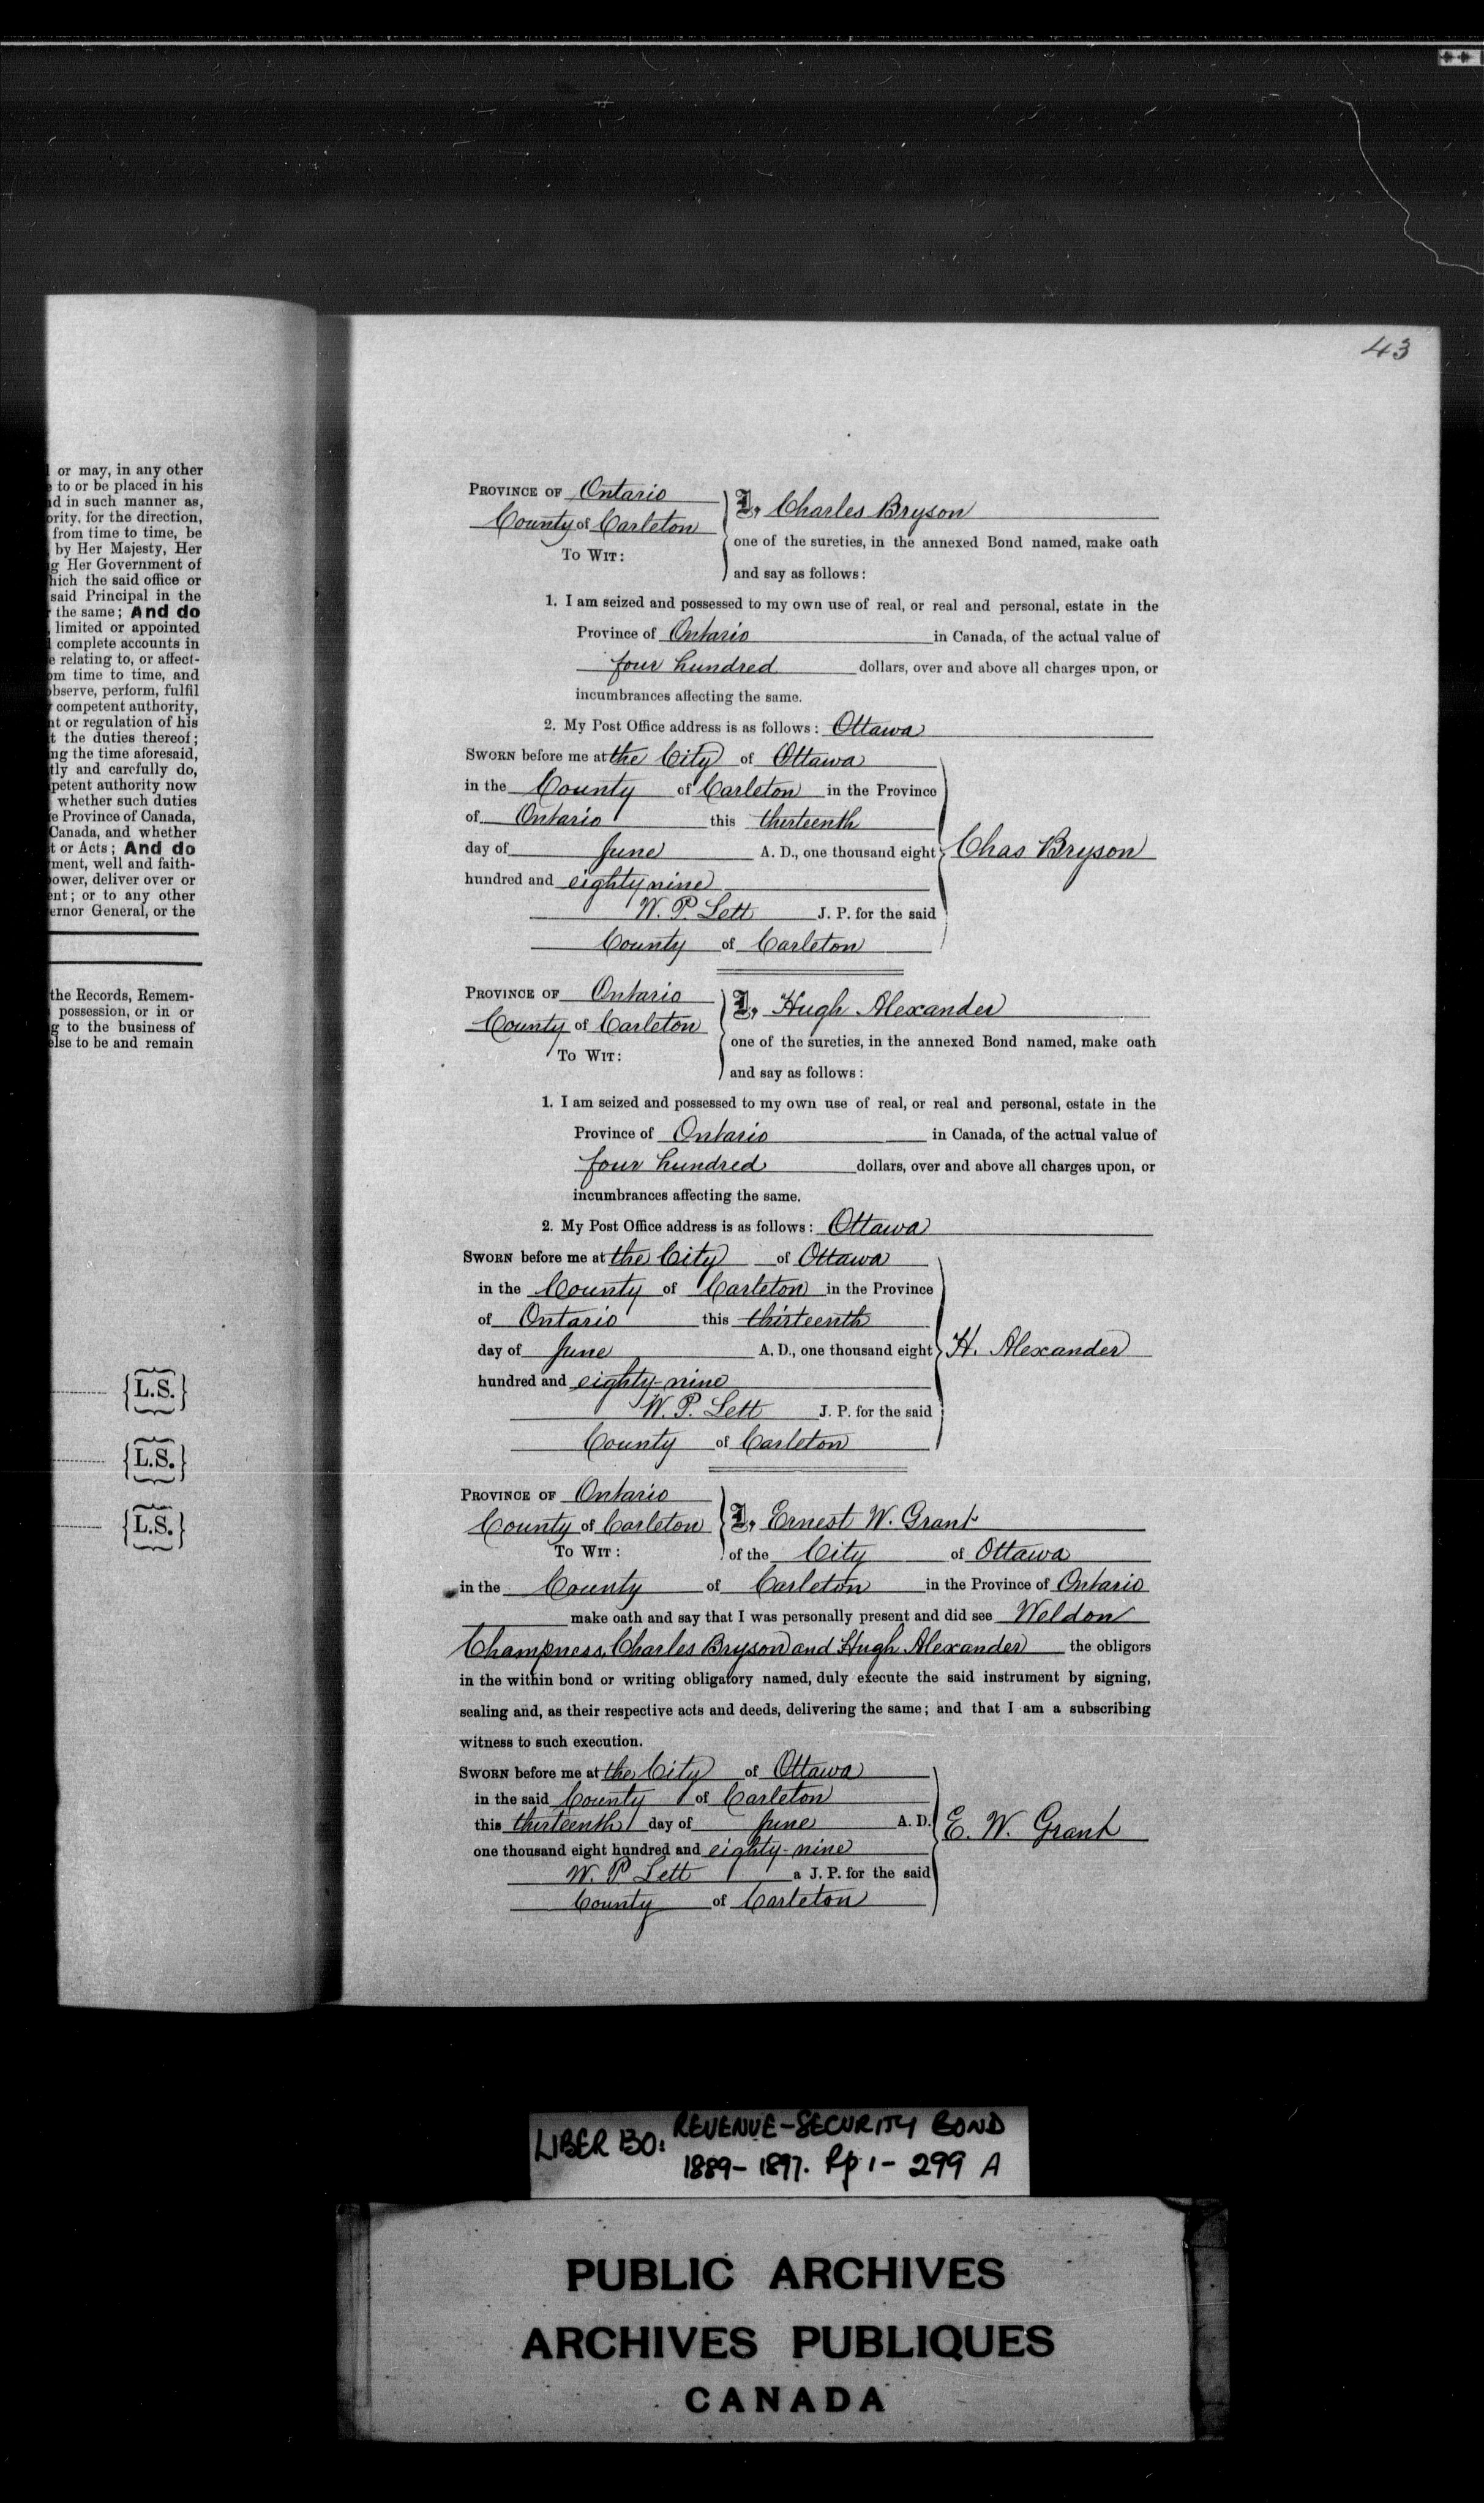 43
or may, in any other
to or be placed in his
in such manner as,
for the direction,
from time to time, be
by Her Majesty, Her
Her Government of
the said office or
said Principal in the
the same; And do
limited or appointed
complete accounts in
relating to, or affect-
time to time, and
perform, fulfil
competent authority,
or regulation of his
the duties thereof;
the time aforesaid,
and carefully do,
authority now
whether such duties
Province of Canada,
Canada, and whether
or Acts; And do
well and faith-
deliver over or
or to any other
General, or the
the Records, Remem-
possession, or in or
to the business of
to be and remain
{L.S.}
{L.S.}
{L.S.}
PROVINCE OF Ontario
County of Carleton
TO WIT:
I, Charles Bryson
one of the sureties, in the annexed Bond named, make oath
and say as follows:
1. I am seized and possessed to my own use of real, or real and personal, estate in the
Province of Ontario in Canada, of the actual value of
four hundred dollars, over and above all charges upon, or
incumbrances affecting the same.
2. My Post Office address is as follows: Ottawa
SWORN before me at the City of Ottawa
in the County of Carleton in the Province
of Ontario this thirteenth
day of June A. D., one thousand eight
hundred and eighty nine
W. P. Lett J. P. for the said
County of Carleton
Chas Bryson
PROVINCE OF Ontario
County of Carleton
TO WIT:
I, Hugh Alexander
one of the sureties, in the annexed Bond named, make oath
and say as follows:
1. I am seized and possessed to my own use of real, or real and personal, estate in the
Province of Ontario in Canada, of the actual value of
four hundred dollars, over and above all charges upon, or
incumbrances affecting the same.
2. My Post Office address is as follows: Ottawa
SWORN before me at the City of Ottawa
in the County of Carleton in the Province
of Ontario this thirteenth
day of June A. D., one thousand eight
hundred and eighty-nine
W. P. Lett J. P. for the said
County of Carleton
H. Alexander
PROVINCE OF Ontario
County of Carleton
TO WIT:
I, Ernest W. Grant
of the City of Ottawa
in the County of Carleton in the Province of Ontario
make oath and say that I was personally present and did see Weldon
Champness, Charles Bryson and Hugh Alexander the obligors
in the within bond or writing obligatory named, duly execute the said instrument by signing,
sealing and, as their respective acts and deeds, delivering the same; and that I am a subscribing
witness to such execution.
SWORN before me at the City of Ottawa
in the said County of Carleton
this thirteenth day of June A. D.
one thousand eight hundred and eighty-nine
W. P. Lett a J. P. for the said
County of Carleton
E. W. Grant
LIBER 130: REVENUE-SECURITY BOND
1889-1897. Pp 1-299 A
PUBLIC ARCHIVES
ARCHIVES PUBLIQUES
CANADA